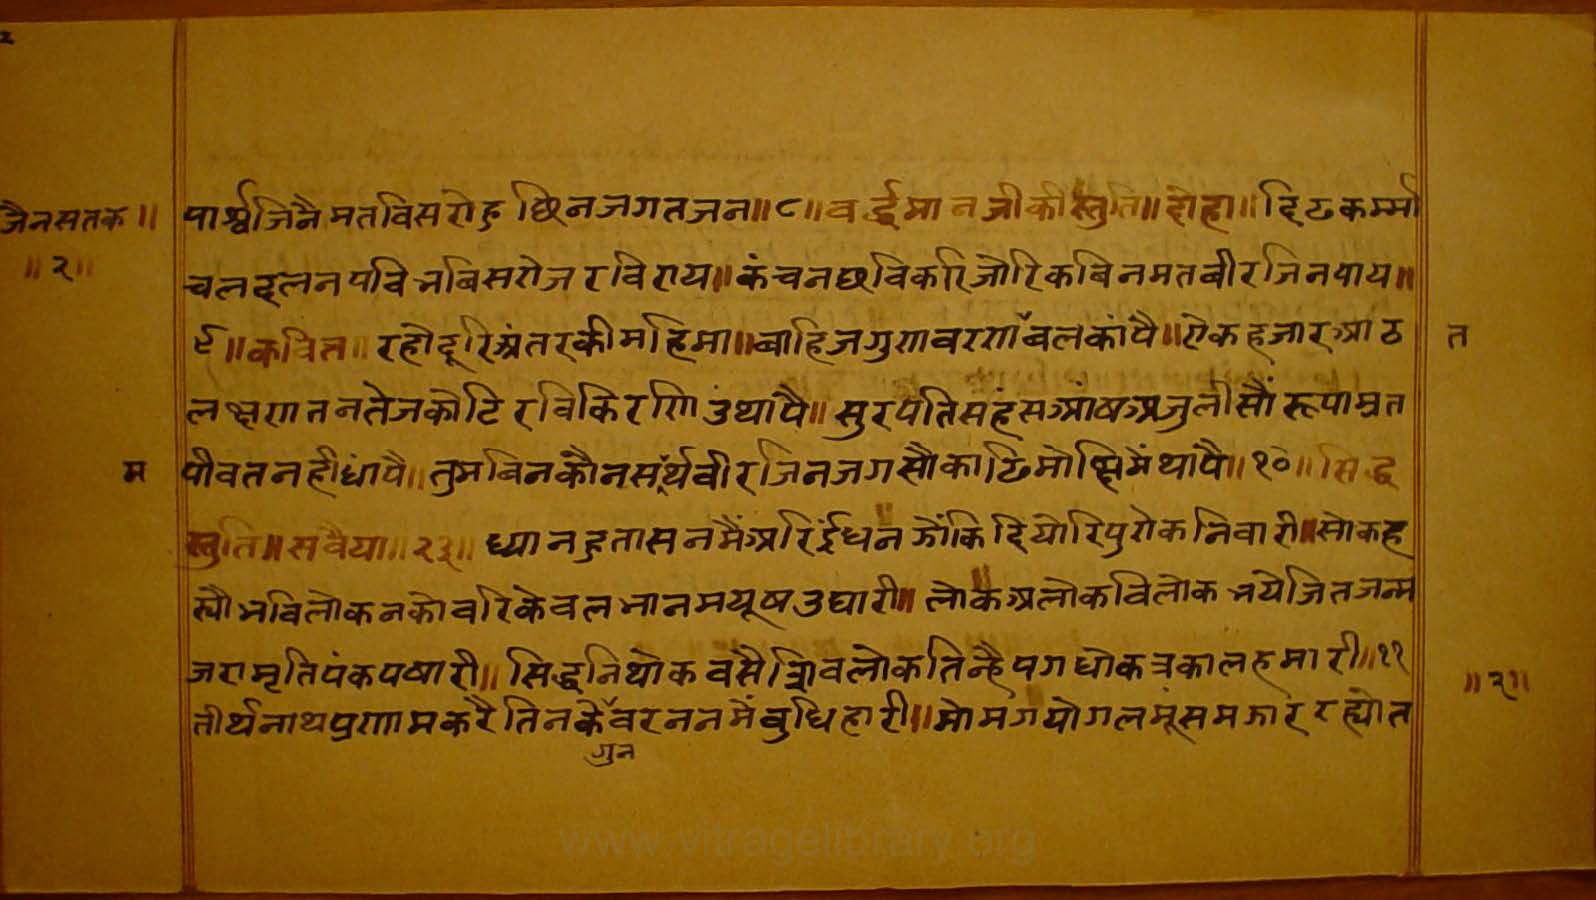 २
जैनसतक॥
॥२॥
पार्श्वजिनैमतविसरोहु छिनजगतजन॥८॥वर्द्धमानजीकीस्तुति॥दोहा॥दिढकर्म्मा
चलदलनपविभविसरोजरविराय॥कंचनछविकरिजोरिकबिनमतबीरजिनपाय॥
९॥कवित॥रहौदूरिअंतरकीमहिमा॥बाहिजगुणवरणबलकांपै॥ऐकहजारआठ
त
लक्षणतनतेजकोटिरविकिरणिउंथापै॥सुरपतिसहंसआंषअजुलीसौंरूपामृत
म
पीवतनहीधांपै॥तुमबिनकौनसंर्थवीरजिनजगसौकाढिमोक्षिमैंथापै॥१०॥सिद्ध
स्तुति॥सवैया॥२३॥ध्यानहुतासनमैंअरिईंधनझोंकिदियोरिपुरोकनिवारी॥सोकह
स्यौभविलोकनकोवरिकेवलभानमयूषउघारी॥लोकअलोकविलोकभयेजितजन्म
जरामृतिपंकपषारी॥सिद्धनिथोकवसैशिवलोकतिन्हैपगधोकत्रकालहमारी॥११
॥२॥
तीर्थनाथप्रणामकरैतिनकेवरननमैंबुधिहारी॥मोमगयोगलमूंसमझाररह्योत
गुन
www.vitragelibrary.org